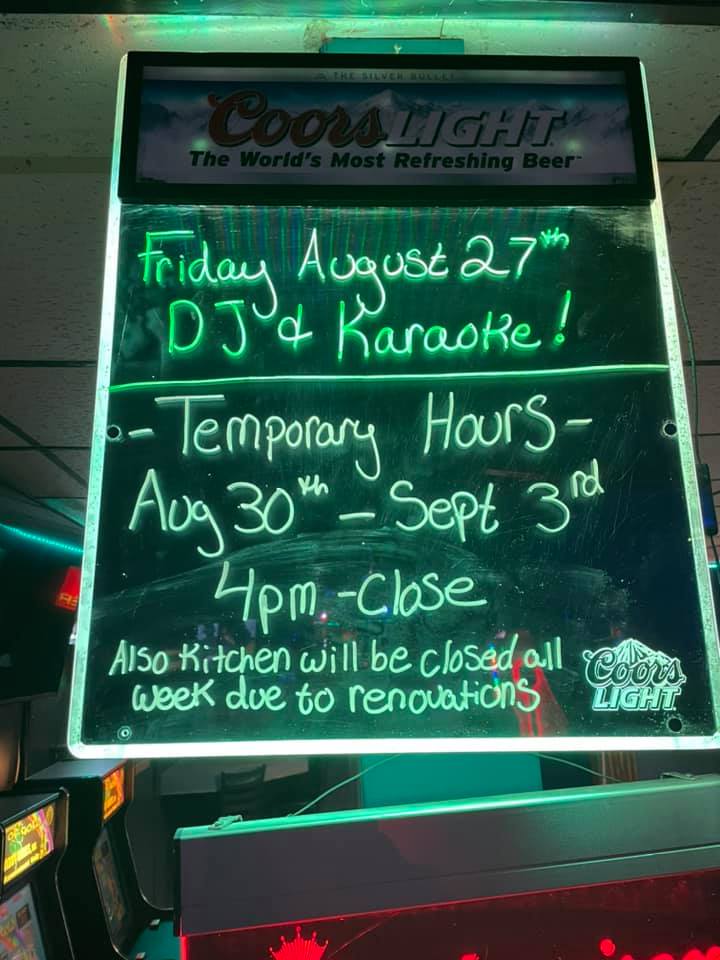 THE SILVER BULLET
Coors LIGHT
The World's Most Refreshing Beer™
Friday August 27th
DJ & Karaoke!
- Temporary Hours -
Aug 30th - Sept 3rd
4pm - Close
Also Kitchen will be closed all
week due to renovations
Coors
LIGHT